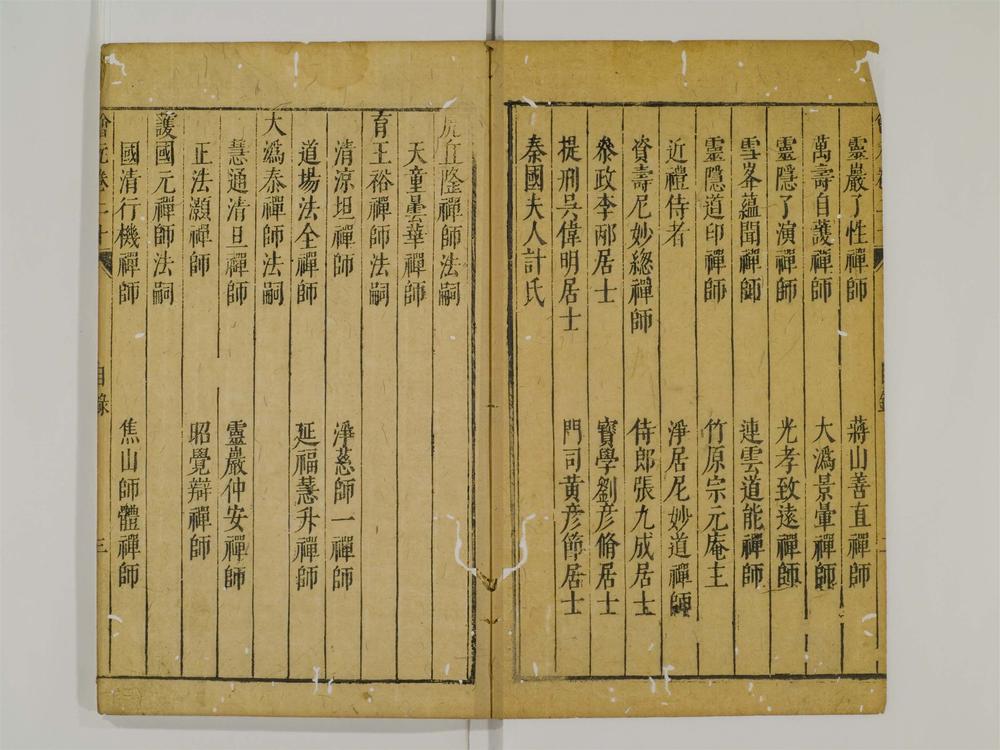 靈巖了性禪師 蔣山善直禪師
萬壽自護禪師 大溈景暈禪師
靈隱了演禪師 光孝致遠禪師
雪峯蘊聞禪師 連雲道能禪師
靈隱道印禪師 竹原宗元庵主
近禮侍者 淨居尼妙道禪師
資壽尼妙總禪師 侍郎張九成居士
參政李邴居士 寶學劉彥脩居士
提刑吳偉明居士 門司黃彥節居士
秦國夫人計氏
虎丘隆禪師法嗣
天童曇華禪師
育王裕禪師法嗣
清涼坦禪師 淨慈師一禪師
道場法全禪師 延福慧升禪師
大溈泰禪師法嗣
慧通清旦禪師 靈巖仲安禪師
正法灝禪師 昭覺辯禪師
護國元禪師法嗣
國清行機禪師 焦山師體禪師
會元卷二十 目錄 三